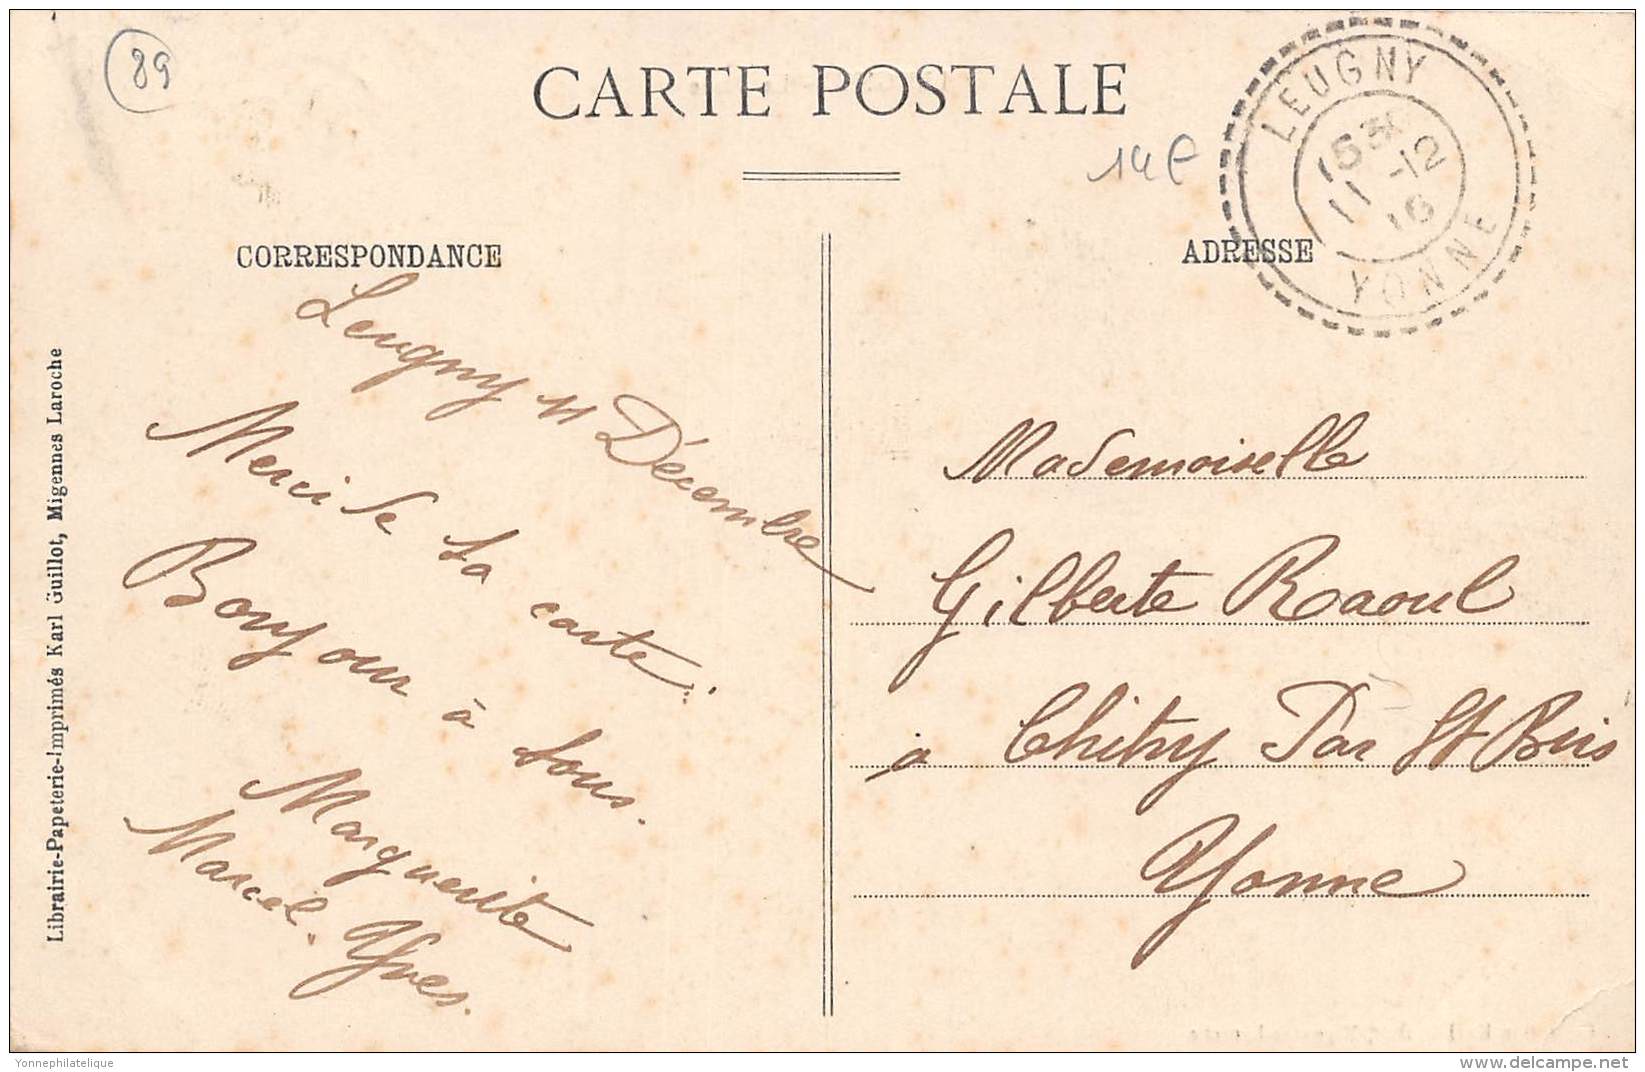 89
CARTE POSTALE
14€
LEUGNY
15 3
11 -12
16
YONNE
CORRESPONDANCE
ADRESSE
Leugny 11 Décembre
Merci de ta carte.
Bonjour à tous.
Marguerite
Marcel. Yves.
Mademoiselle
Gilberte Raoul
à Chitry Par St Bris
Yonne
Librairie-Papeterie-Imprimés Karl Guillot, Migennes Laroche
Yonnephilatelique
delcampe.net